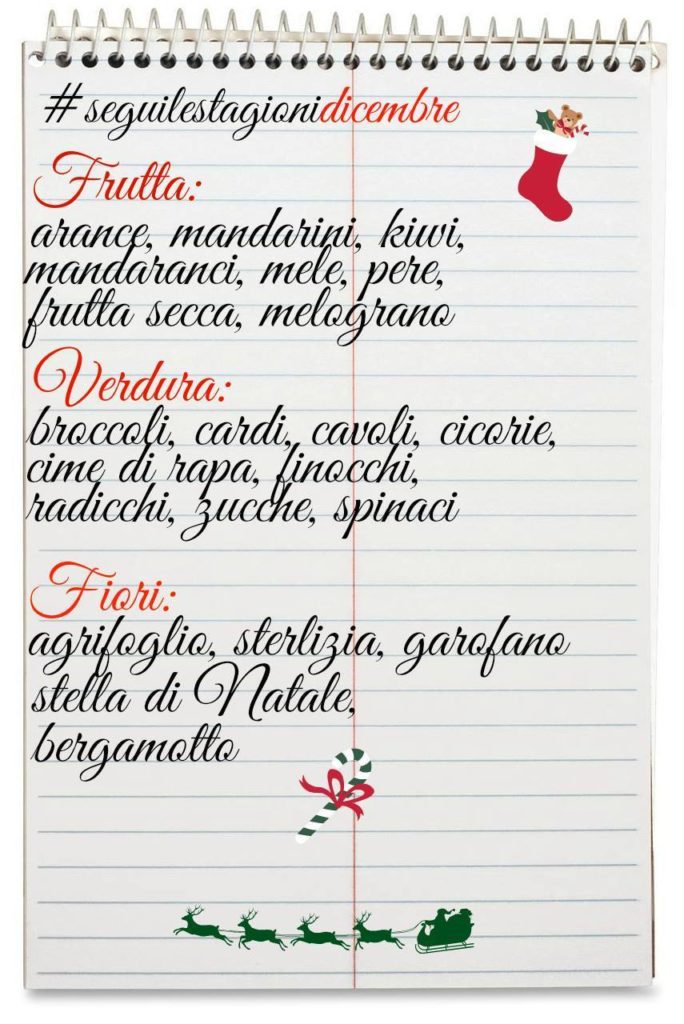 #seguilestagionidicembre
Frutta:
arance, mandarini, kiwi,
mandaranci, mele, pere,
frutta secca, melograno
Verdura:
broccoli, cardi, cavoli, cicorie,
cime di rapa, finocchi,
radicchi, zucche, spinaci
Fiori:
agrifoglio, sterlizia, garofano
stella di Natale,
bergamotto